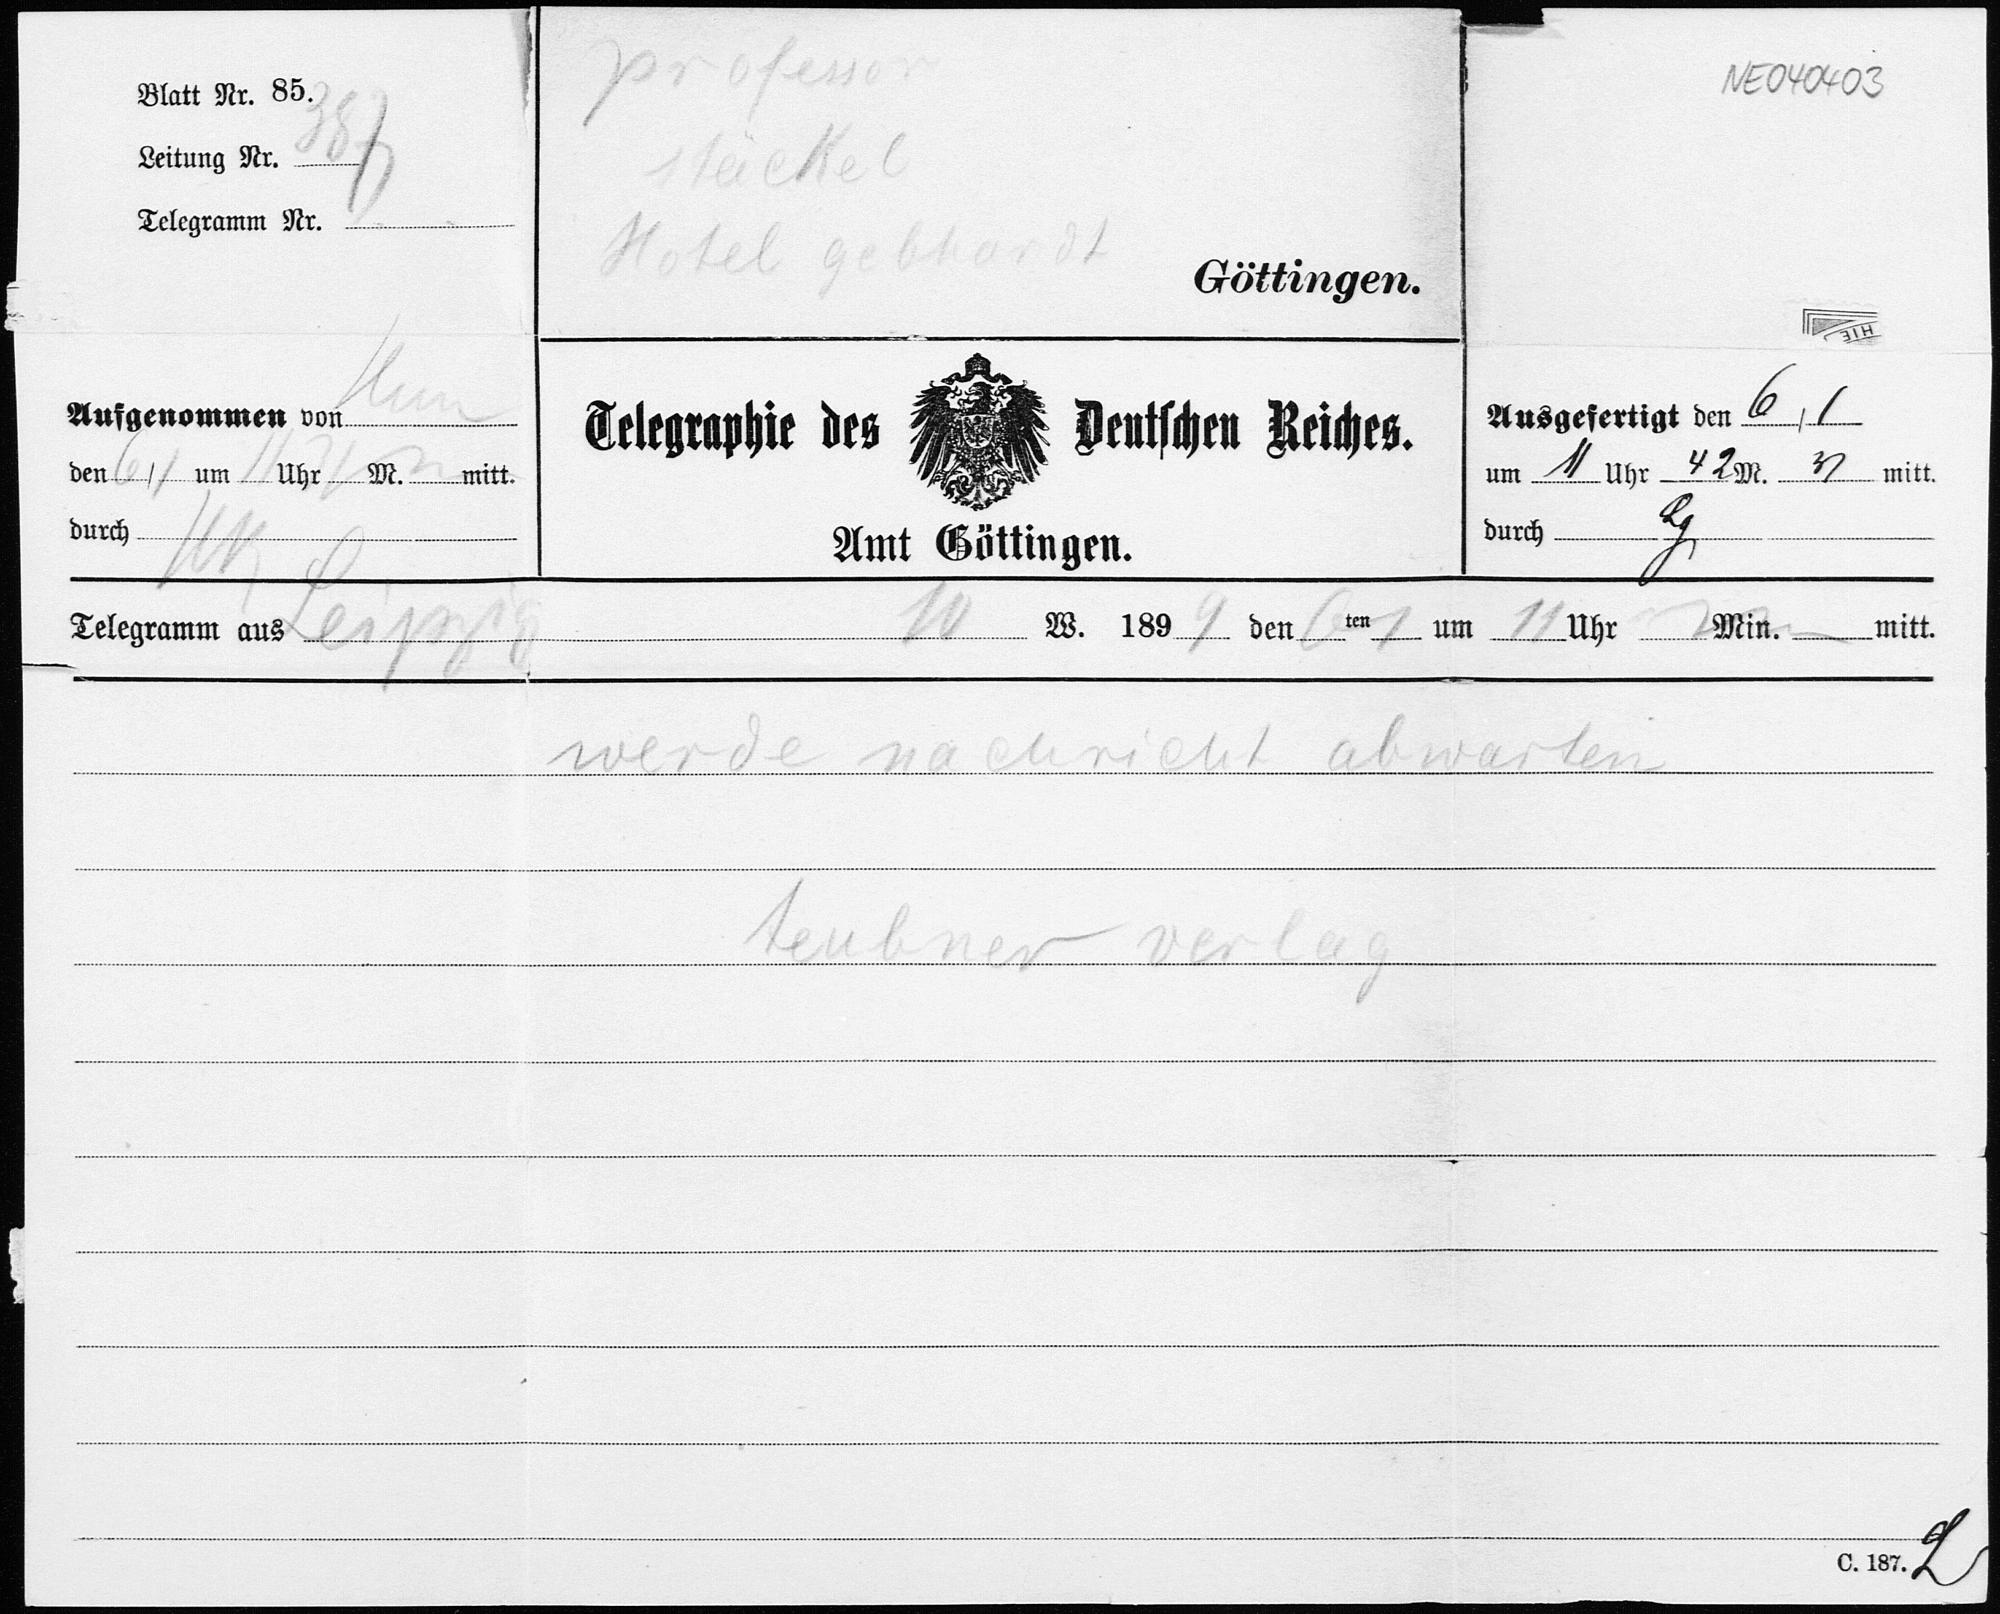 Blatt Nr. 85.
Leitung Nr. 387
Telegramm Nr.
professor
stäckel
Hotel gebhardt
Göttingen.
NE040403
HIE
Aufgenommen von
den 6/1 um 11 Uhr 31 M. mitt.
durch
Telegraphie des Deutschen Reiches.
Amt Göttingen.
Ausgefertigt den 6/1
um 11 Uhr 42 M. mitt.
durch
Telegramm aus Leipzig 10 W. 1899 den 6ten 1 um 11 Uhr Min. mitt.
werde nachricht abwarten
teubner verlag
C. 187.